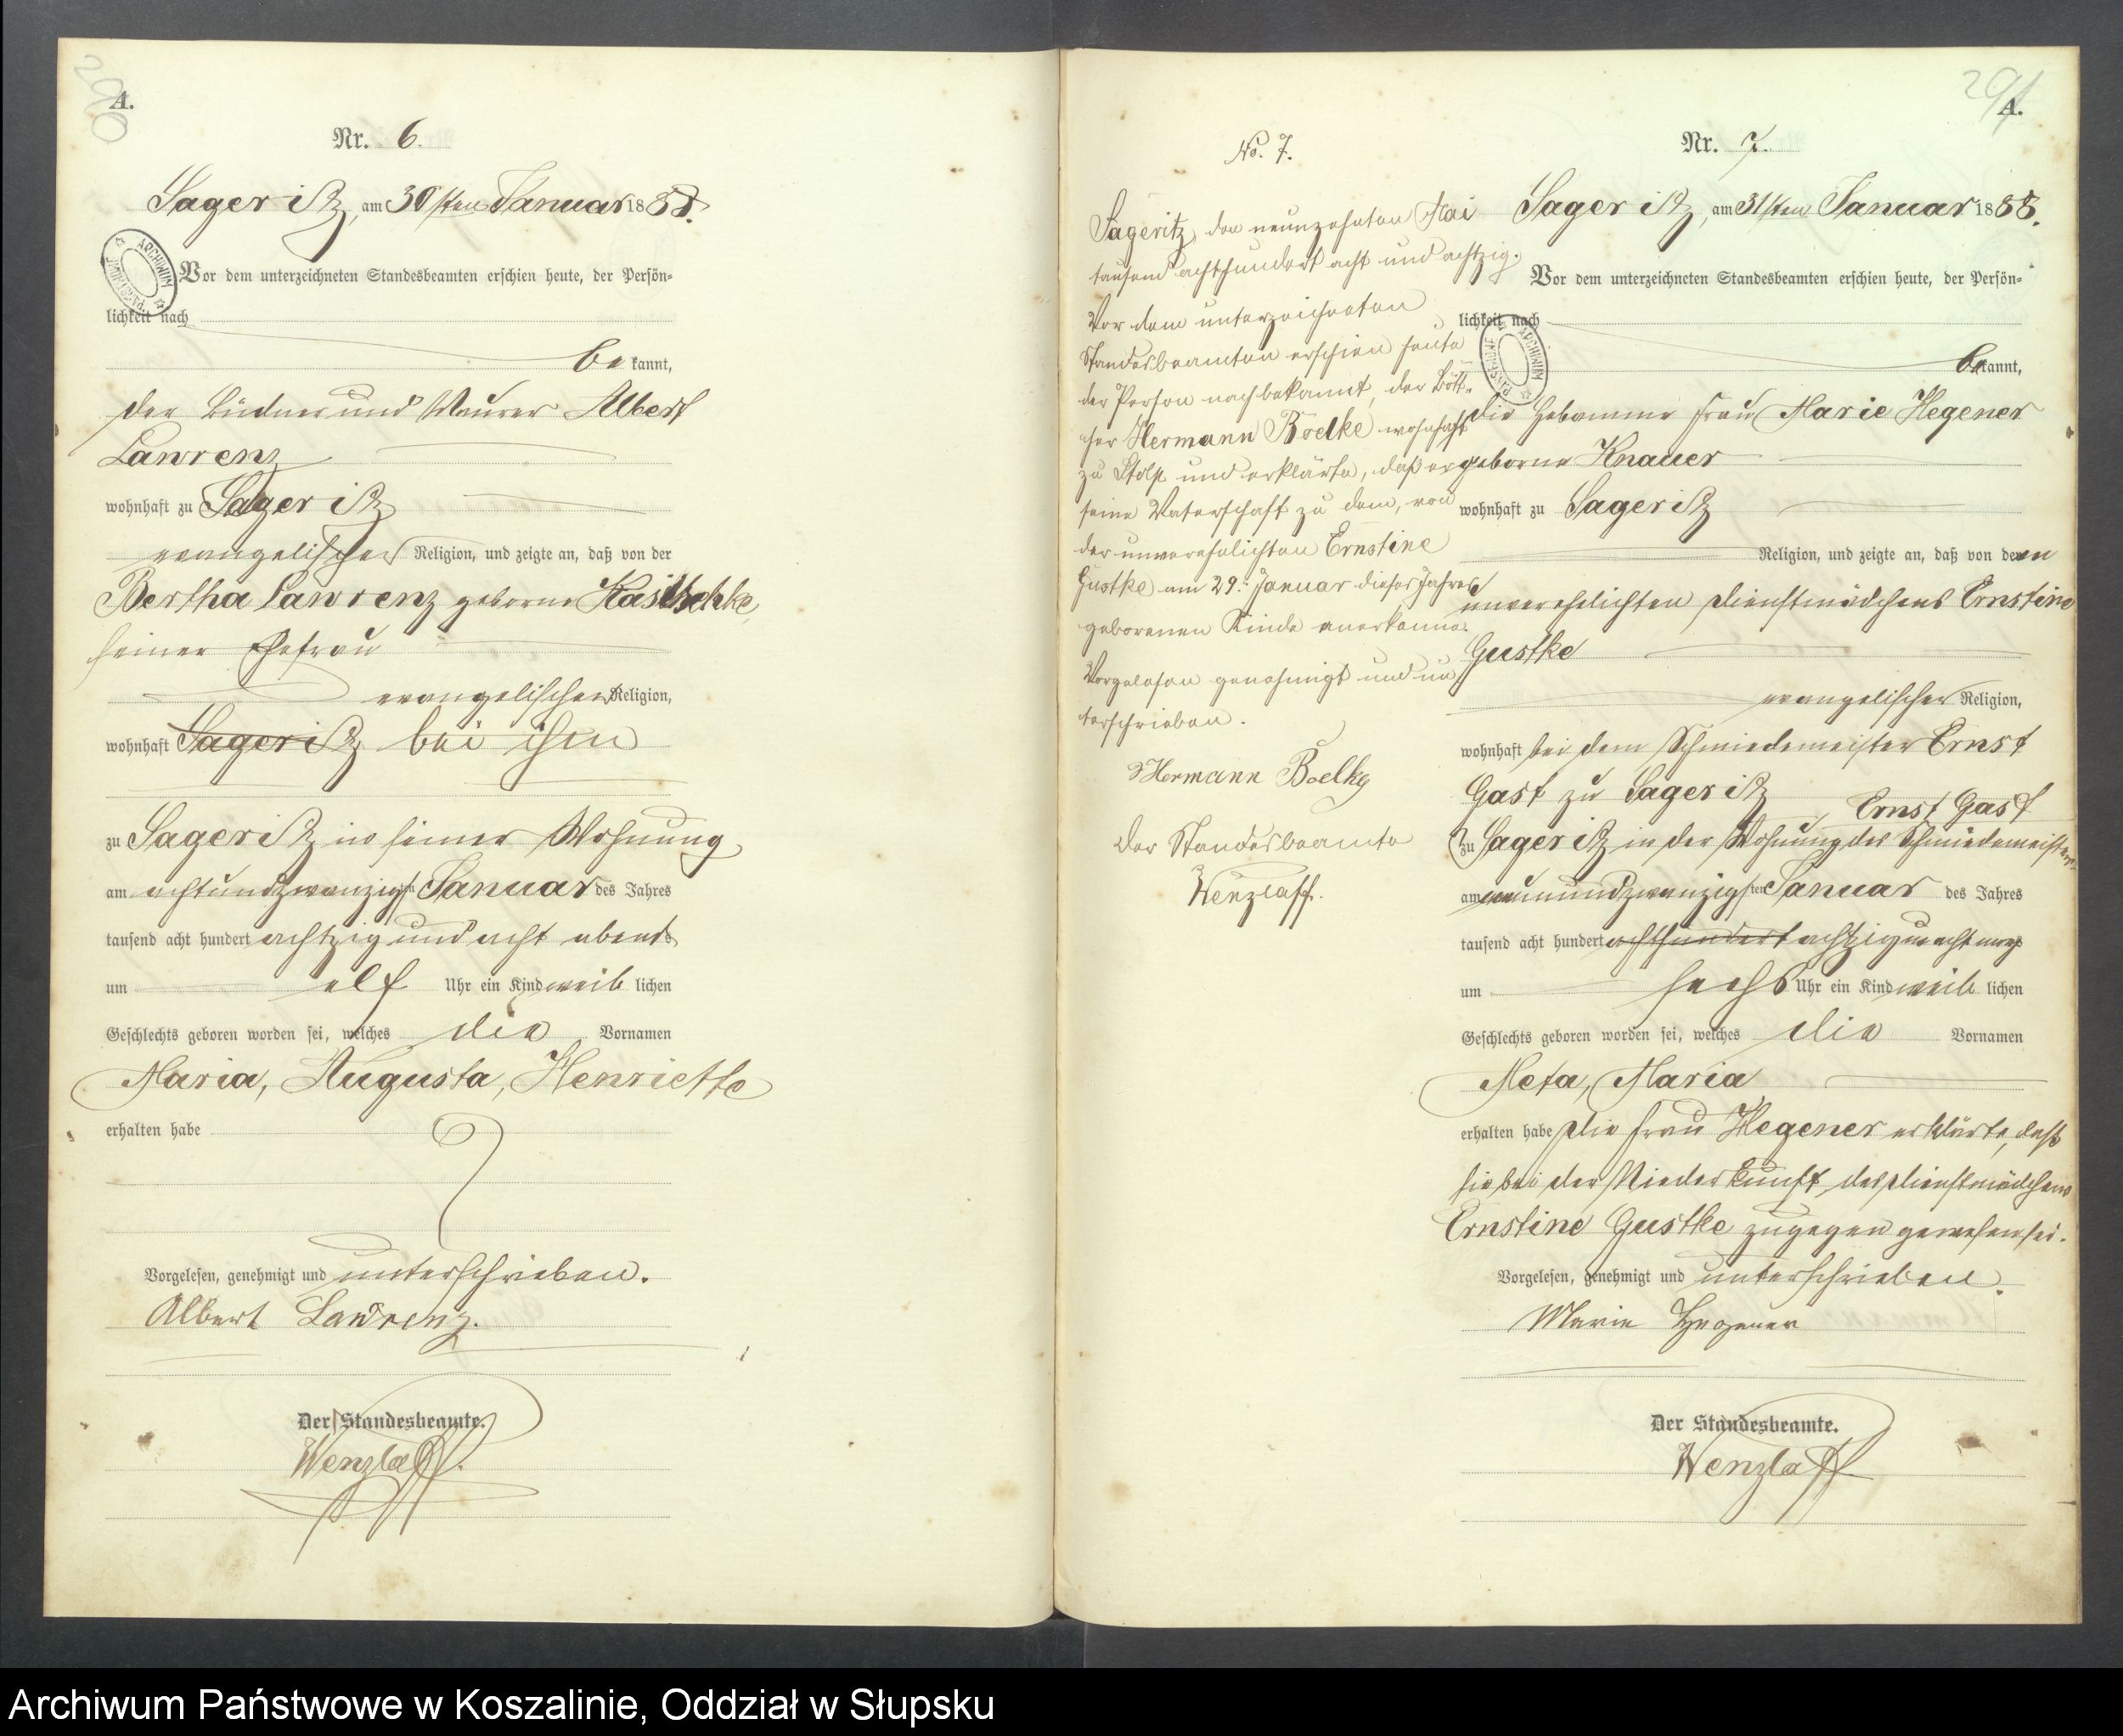 290
A.
Nr. 6.
Sageritz, am 30sten Januar 1888.
Vor dem unterzeichneten Standesbeamten erschien heute, der Persön-
lichkeit nach
bekannt,
der Büdner und Maurer Albert
Lawrenz
wohnhaft zu Sageritz
evangelischer Religion, und zeigte an, daß von der
Bertha Lawrenz geborne
seiner Ehefrau
evangelischer Religion,
wohnhaft Sageritz bei ihm
zu Sageritz in seiner Wohnung
am achtundzwanzigsten Januar des Jahres
tausend acht hundert achtzig und acht abends
um elf Uhr ein Kind weiblichen
Geschlechts geboren worden sei, welches die Vornamen
Maria, Augusta, Henriette
erhalten habe
Vorgelesen, genehmigt und unterschrieben.
Albert Lawrenz.
Der Standesbeamte.
Wenzlaff.
ARCHIWUM PAŃSTWOWE
No. 7.
Sageritz, den neunzehnten Mai
tausend achthundert acht und achtzig.
Vor dem unterzeichneten
Standesbeamten erschien heute
der Person nach bekannt, der Bött-
cher Hermann Boelke wohnhaft
zu Stolp und erklärte, daß er
seine Vaterschaft zu dem, von
der unverehelichten Ernstine
Gustke am 29. Januar dieses Jahres
geborenen Kinde anerkenne.
Vorgelesen genehmigt und un
terschrieben.
Hermann Boelke
Der Standesbeamte
Wenzlaff.
291
A.
Nr. 7.
Sageritz, am 31sten Januar 1888.
Vor dem unterzeichneten Standesbeamten erschien heute, der Persön-
lichkeit nach
bekannt,
die Hebamme Frau Marie Hegener
geborne Knauer
wohnhaft zu Sageritz
Religion, und zeigte an, daß von der
unverehelichten Dienstmädchens Ernstine
Gustke
evangelischer Religion,
wohnhaft bei dem Schmiedemeister Ernst
Gast zu Sageritz
Ernst Gast
zu Sageritz in der Wohnung des Schmiedemeisters
am neunundzwanzigsten Januar des Jahres
tausend acht hundert achthundert achtzig u acht morgs
um sechs Uhr ein Kind weiblichen
Geschlechts geboren worden sei, welches die Vornamen
Meta, Maria
erhalten habe Die Frau Hegener erklärte, daß
sie bei der Niederkunft des Dienstmädchens
Ernstine Gustke zugegen gewesen sei.
Vorgelesen, genehmigt und unterschrieben.
Marie Hegener
Der Standesbeamte.
Wenzlaff
ARCHIWUM PAŃSTWOWE
Archiwum Państwowe w Koszalinie, Oddział w Słupsku